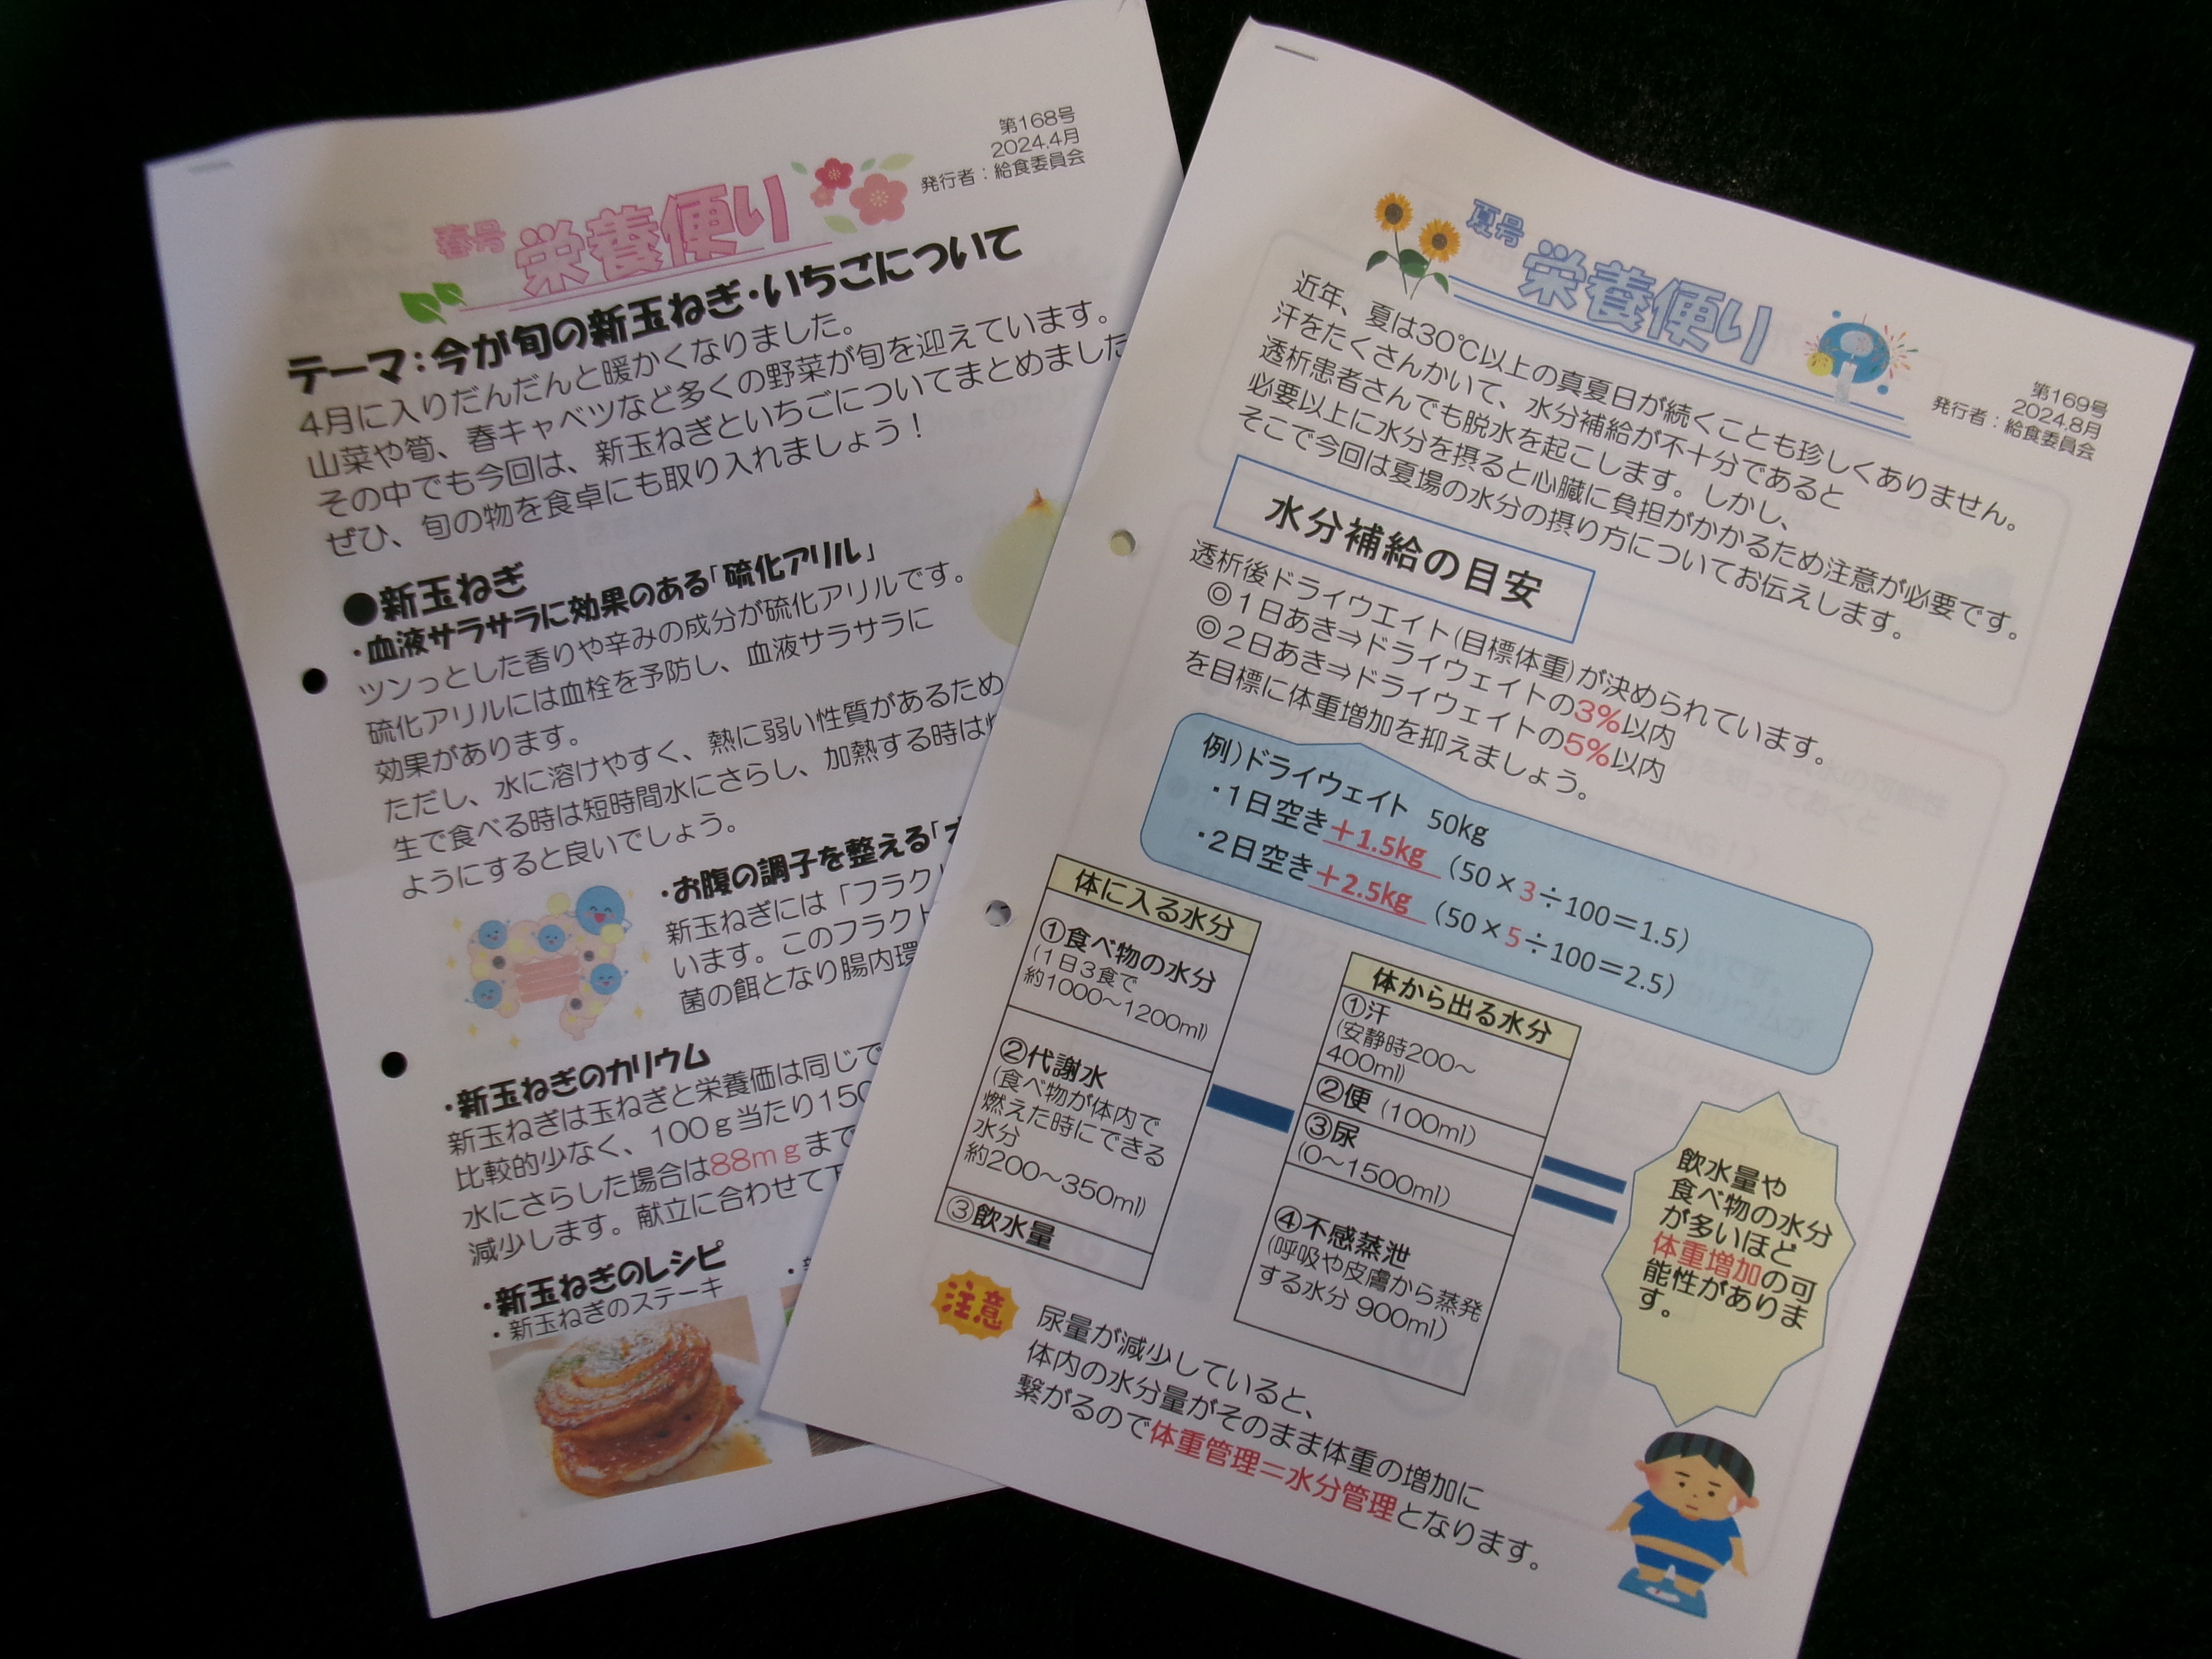 第168号
2024.4月
発行者：給食委員会
春号
栄養便り
テーマ：今が旬の新玉ねぎ・いちごについて
4月に入りだんだんと暖かくなりました。
山菜や筍、春キャベツなど多くの野菜が旬を迎えています。
その中でも今回は、新玉ねぎといちごについてまとめました
ぜひ、旬の物を食卓にも取り入れましょう！
●新玉ねぎ
・血液サラサラに効果のある「硫化アリル」
ツンっとした香りや辛みの成分が硫化アリルです。
硫化アリルには血栓を予防し、血液サラサラに
効果があります。
ただし、水に溶けやすく、熱に弱い性質があるため
生で食べる時は短時間水にさらし、加熱する時は
ようにすると良いでしょう。
・お腹の調子を整える「
新玉ねぎには「フラク
います。このフラクト
菌の餌となり腸内環
・新玉ねぎのカリウム
新玉ねぎは玉ねぎと栄養価は同じで
比較的少なく、100ｇ当たり150
水にさらした場合は88mｇまで
減少します。献立に合わせて
・新玉ねぎのレシピ
・新玉ねぎのステーキ
夏号
栄養便り
第169号
2024.8月
発行者：給食委員会
近年、夏は30℃以上の真夏日が続くことも珍しくありません。
汗をたくさんかいて、水分補給が不十分であると
透析患者さんでも脱水を起こします。しかし、
必要以上に水分を摂ると心臓に負担がかかるため注意が必要です。
そこで今回は夏場の水分の摂り方についてお伝えします。
水分補給の目安
透析後ドライウエイト(目標体重)が決められています。
◎1日あき⇒ドライウェイトの3%以内
◎2日あき⇒ドライウェイトの5%以内
を目標に体重増加を抑えましょう。
例）ドライウェイト 50kg
・1日空き＋1.5kg（50×3÷100＝1.5）
・2日空き＋2.5kg（50×5÷100＝2.5）
体に入る水分
①食べ物の水分
(1日3食で
約1000～1200ml)
②代謝水
(食べ物が体内で
燃えた時にできる
水分
約200～350ml)
③飲水量
体から出る水分
①汗
(安静時200～
400ml)
②便（100ml）
③尿
(0～1500ml)
④不感蒸泄
(呼吸や皮膚から蒸発
する水分 900ml)
飲水量や
食べ物の水分
が多いほど
体重増加の可
能性がありま
す。
注意
尿量が減少していると、
体内の水分量がそのまま体重の増加に
繋がるので体重管理＝水分管理となります。